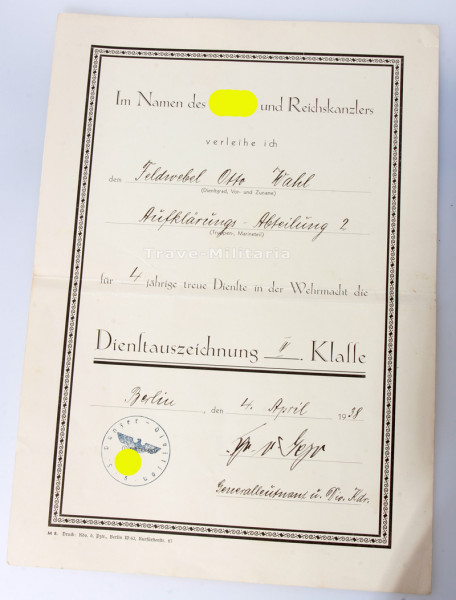 Im Namen des und Reichskanzlers
verleihe ich
dem Feldwebel Otto Wahl
(Dienstgrad, Vor- und Zuname)
Aufklärungs-Abteilung 2
(Truppen-, Marineteil)
Trave-Militaria
für 4 jährige treue Dienste in der Wehrmacht die
Dienstauszeichnung IV. Klasse
Berlin, den 4. April 1938
Generalleutnant u. Div. Kdr.